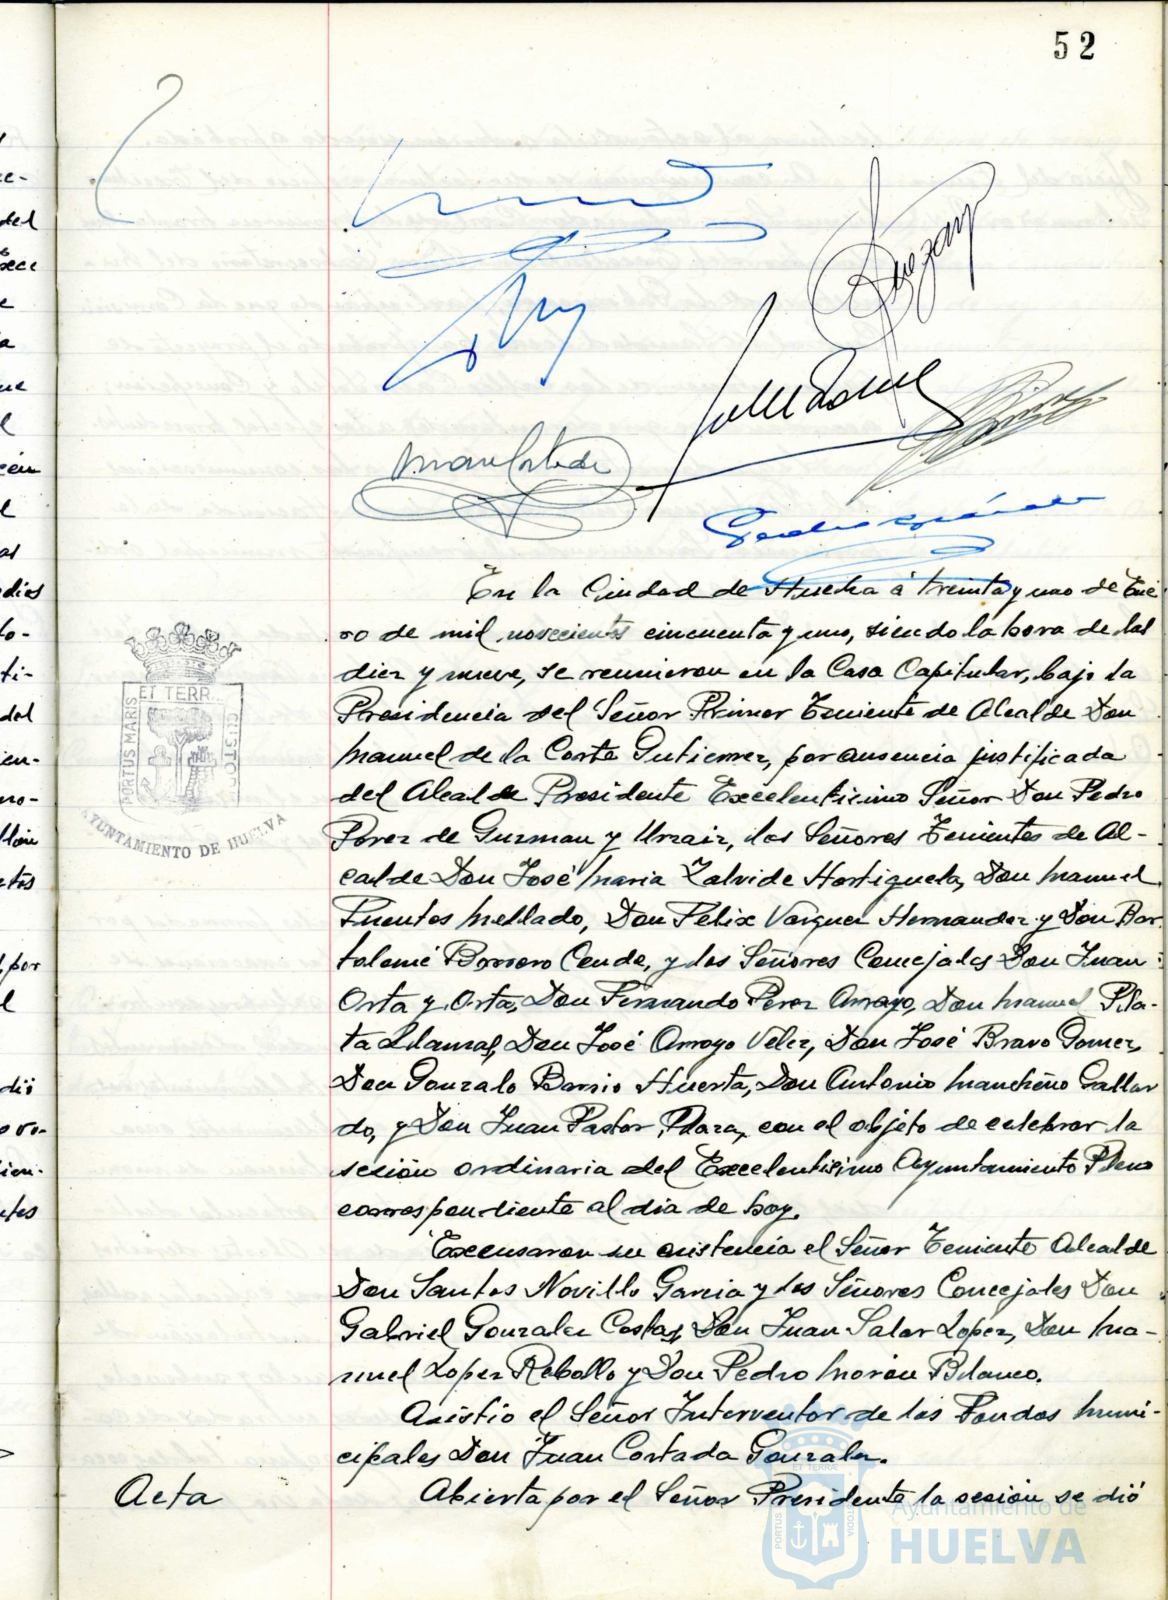 52
En la Ciudad de Huelva á treinta y uno de Ene
ro de mil novecientos cincuenta y uno, siendo la hora de las
diez y nueve, se reunieron en la Casa Capitular, bajo la
Presidencia del Señor Primer Teniente de Alcalde Don
Manuel de la Corte Gutierrez, por ausencia justificada
del Alcalde Presidente Excelentisimo Señor Don Pedro
Perez de Guzman y Urzaiz, los Señores Tenientes de Al-
calde Don José Maria Zalvide Hortiguela, Don Manuel
Fuentes Mellado, Don Felix Vazquez Hernandez y Don Bar
tolomé Borrero Conde, y los Señores Concejales Don Juan
Orta y Orta, Don Fernando Perez Arroyo, Don Manuel Pla-
ta Llamas, Don José Arroyo Velez, Don José Bravo Gomez,
Don Gonzalo Barrio Huerta, Don Antonio Mancheño Gallar
do, y Don Juan Pastor Plaza, con el objeto de celebrar la
sesión ordinaria del Excelentisimo Ayuntamiento Pleno
correspondiente al dia de hoy.
Excusaron su asistencia el Señor Teniente Alcalde
Don Santos Novillo Garcia y los Señores Concejales Don
Gabriel Gonzalez Costas, Don Juan Salar Lopez, Don Ma-
nuel Lopez Rebollo y Don Pedro Morón Blanco.
Asistio el Señor Interventor de los Fondos Muni-
cipales Don Juan Cortada Gonzalez.
Acta
Abierta por el Señor Presidente la sesión se dió
PORTUS MARIS
ET TERR
CUSTO
AYUNTAMIENTO DE HUELVA
Ayuntamiento de
HUELVA